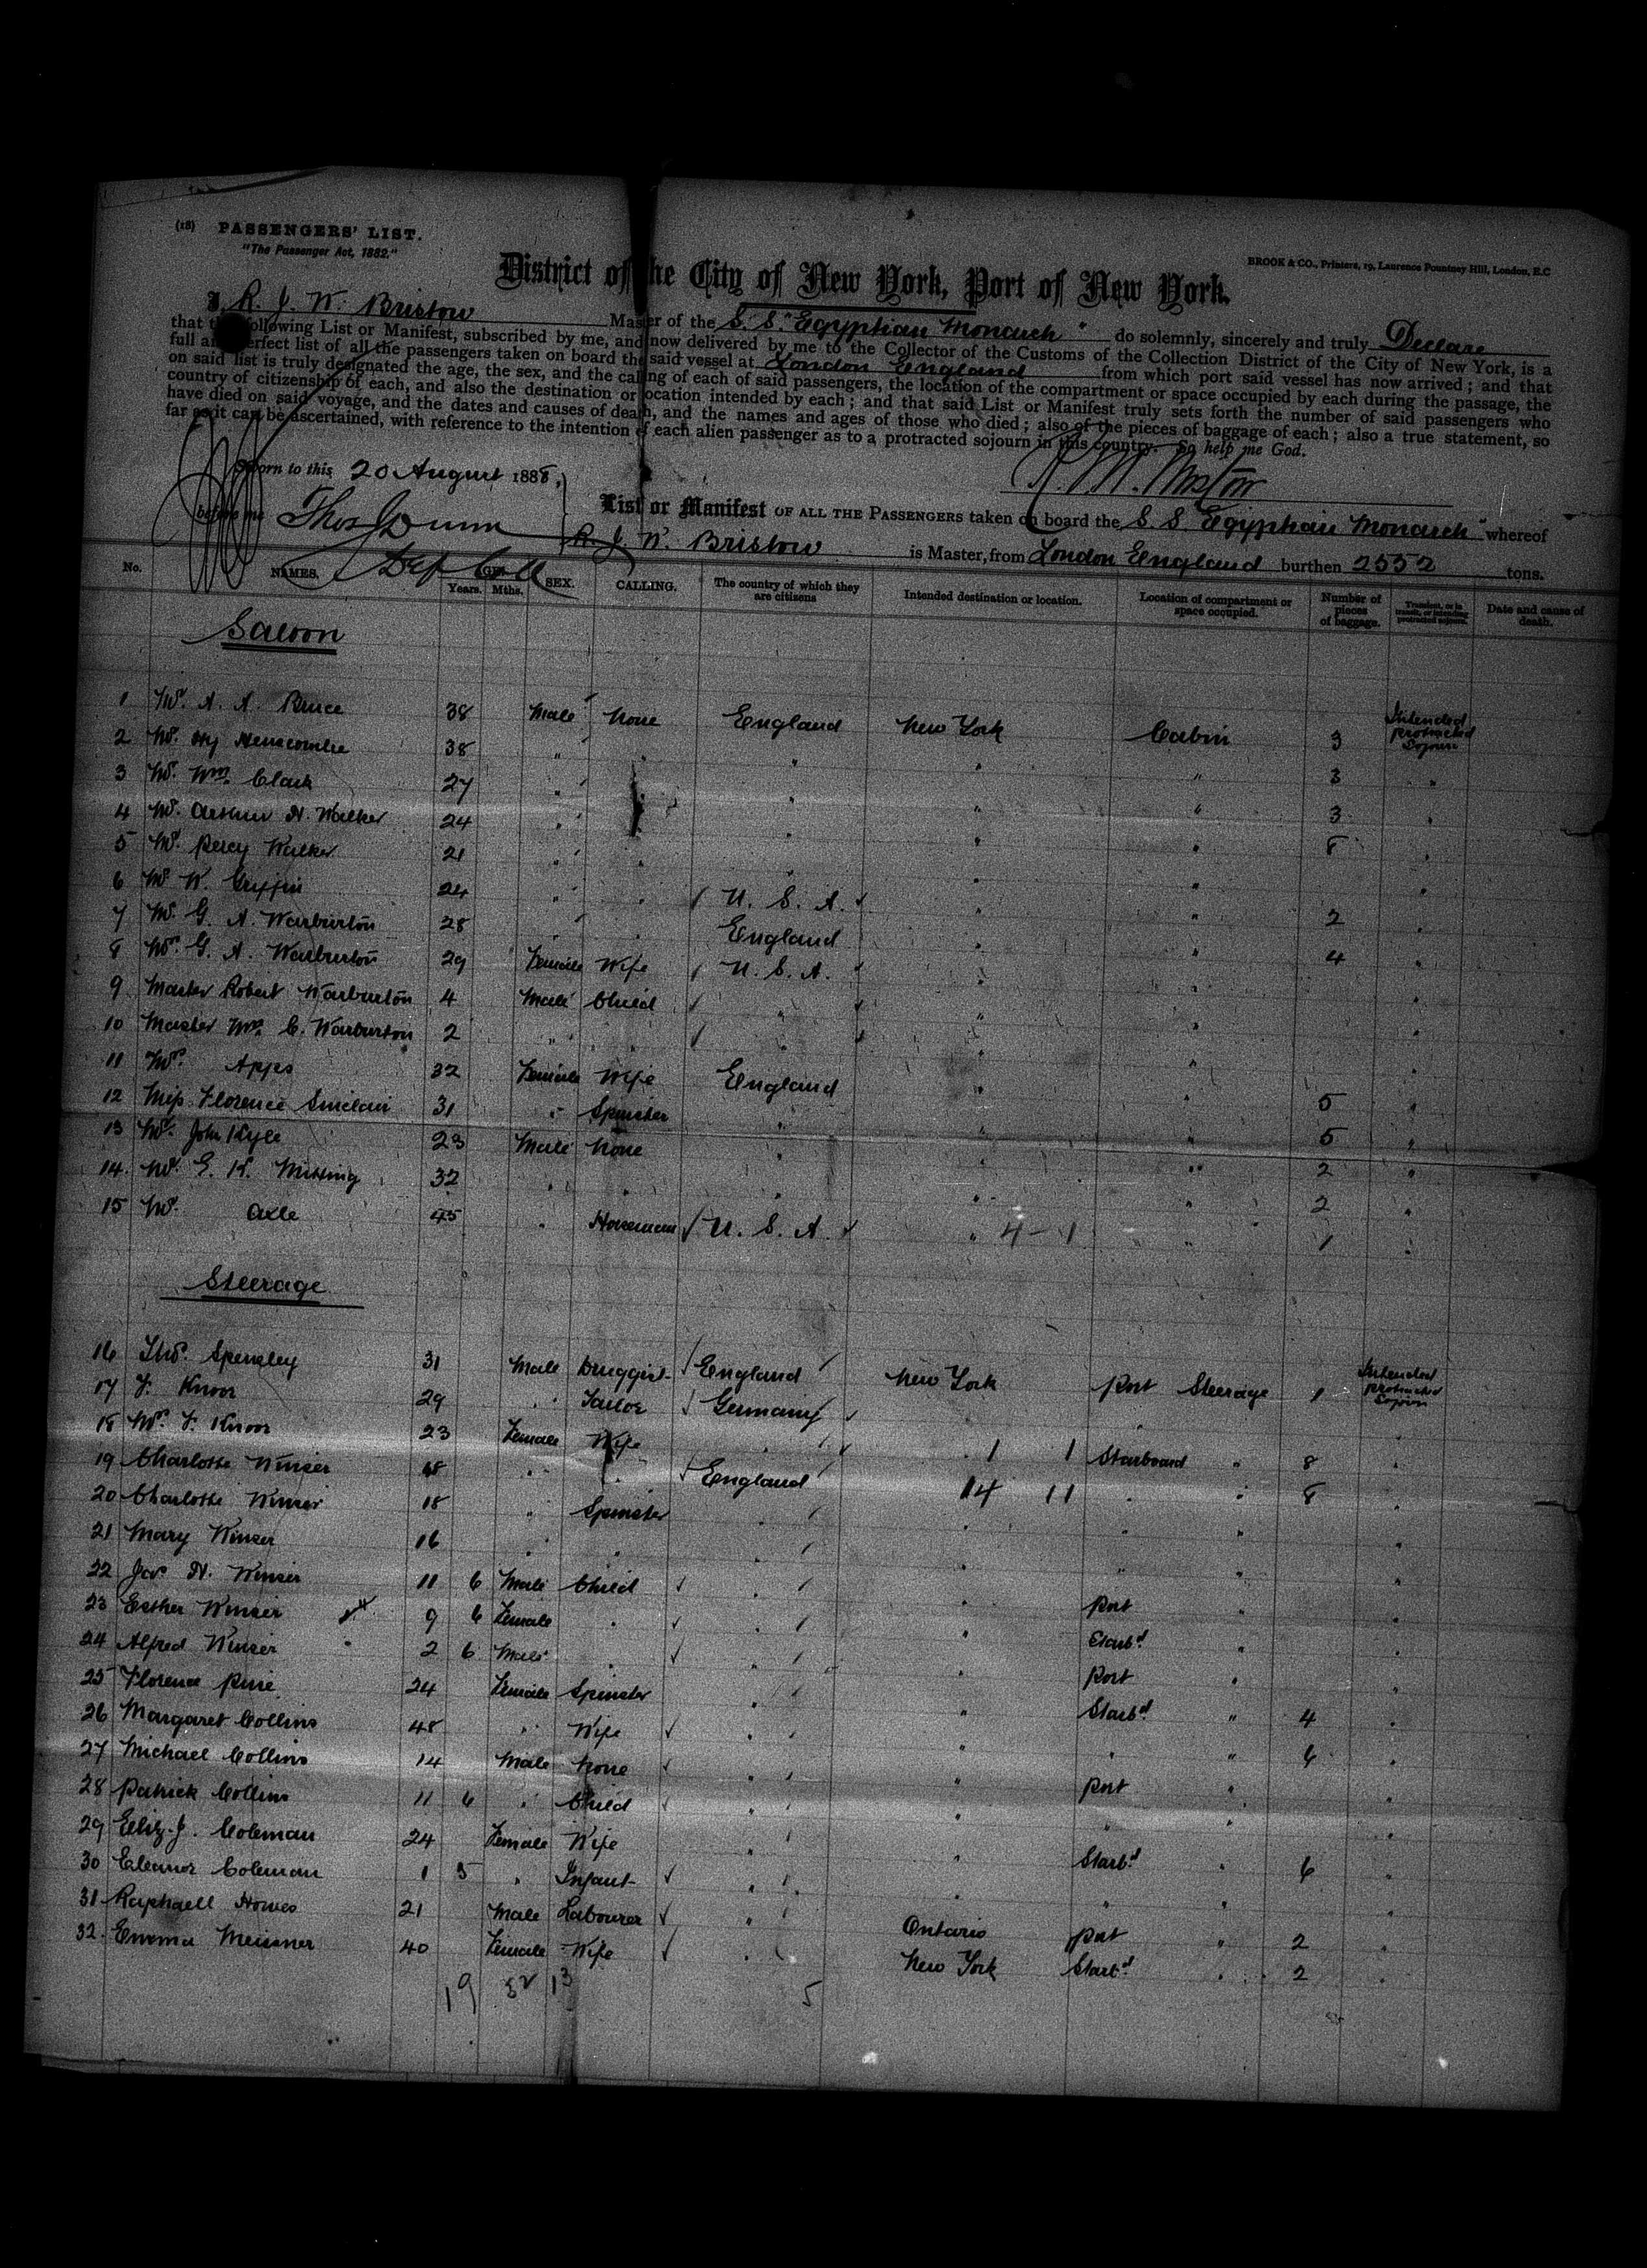 (18) PASSENGERS' LIST.
"The Passenger Act, 1882."
BROOK & CO., Printers, 19, Laurence Pountney Hill, London, E.C
District of the City of New York, Port of New York.
I, R. J. W. Bristow Master of the S. S. "Egyptian Monarch" do solemnly, sincerely and truly Declare
that the following List or Manifest, subscribed by me, and now delivered by me to the Collector of the Customs of the Collection District of the City of New York, is a
full and perfect list of all the passengers taken on board the said vessel at London England from which port said vessel has now arrived; and that
on said list is truly designated the age, the sex, and the calling of each of said passengers, the location of the compartment or space occupied by each during the passage, the
country of citizenship of each, and also the destination or location intended by each; and that said List or Manifest truly sets forth the number of said passengers who
have died on said voyage, and the dates and causes of death, and the names and ages of those who died; also of the pieces of baggage of each; also a true statement, so
far as it can be ascertained, with reference to the intention of each alien passenger as to a protracted sojourn in this country. So help me God.
Sworn to this 20 August 1888,
before me Thos Dunn
Dep Coll
List or Manifest OF ALL THE PASSENGERS taken on board the S. S. "Egyptian Monarch" whereof
R. J. W. Bristow is Master, from London England burthen 2552 tons.
No. NAMES. AGE. Years. Mths. SEX. CALLING. The country of which they are citizens Intended destination or location. Location of compartment or space occupied. Number of pieces of baggage. Transient, or in transit, or intending protracted sojourn. Date and cause of death.
Saloon
1 Mr. A. A. Bruce 38 Male None England New York Cabin 3 Intended protracted Sojourn
2 Mr. Hy 38 " " " " " 3 "
3 Mr. Wm. Clark 27 " " " " " 3 "
4 Mr. Arthur H. Walker 24 " " " " " 8 "
5 Mr. Percy Walker 21 " " " " " "
6 Mr W. Griffin 24 " " U. S. A. " " 2 "
7 Mr. G. A. Warburton 28 " " England " " 4 "
8 Mrs. G. A. Warburton 29 Female Wife U. S. A. " " "
9 Master Robert Warburton 4 Male Child " " " "
10 Master Wm. C. Warburton 2 " " " " " "
11 Mrs. Apps 32 Female Wife England " " 5 "
12 Miss Florence Sinclair 31 " Spinster " " " 5 "
13 Mr. John Kyle 23 Male None " " " 2 "
14. Mr. G. K. 32 " " " " " 2 "
15 Mr. Axle 45 " Horseman U. S. A. " 4 - 1 " 1 "
Steerage
16 Thos. Spensley 31 Male Druggist England New York Port Steerage 1 Intended protracted Sojourn
17 F. Knorr 29 " Tailor Germany "
18 Mrs. F. Knorr 23 Female Wife " 1 1 Starboard " 8 "
19 Charlotte Winser 48 " " England 14 11 " " 8 "
20 Charlotte Winser 18 " Spinster " " " " "
21 Mary Winser 16 " " " " " " "
22 Jas H. Winser 11 6 Male Child " " Port " "
23 Esther Winser 9 6 Female " " " Starbd. " "
24 Alfred Winser 2 6 Male " " " Port " "
25 Florence Pirie 24 Female Spinster " " Starbd. " 4 "
26 Margaret Collins 48 " Wife " " " " 6 "
27 Michael Collins 14 Male None " " Port " "
28 Patrick Collins 11 6 " Child " " " " "
29 Eliz. J. Coleman 24 Female Wife " " Starbd. " 6 "
30 Eleanor Coleman 1 5 " Infant " " " " "
31 Raphaell Howes 21 Male Labourer " Ontario Port " 2 "
32. Emma Meissner 40 Female Wife " New York Starbd. " 2 "
19 32 13 5